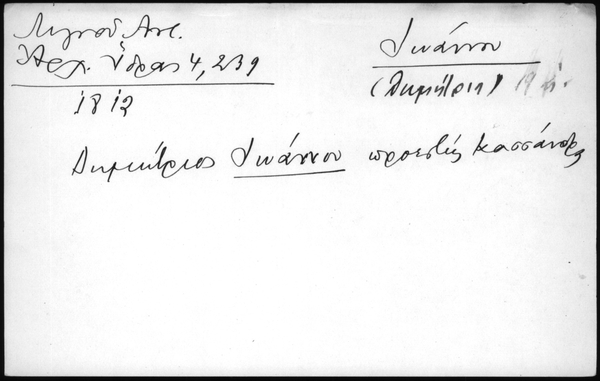 Λιγνού Αντ.
Αρχ. Ύδρας 4, 239
1812
Ιωάννου
(Δημήτρης)
Δημήτριος Ιωάννου προεστώς Κασσάνδρας